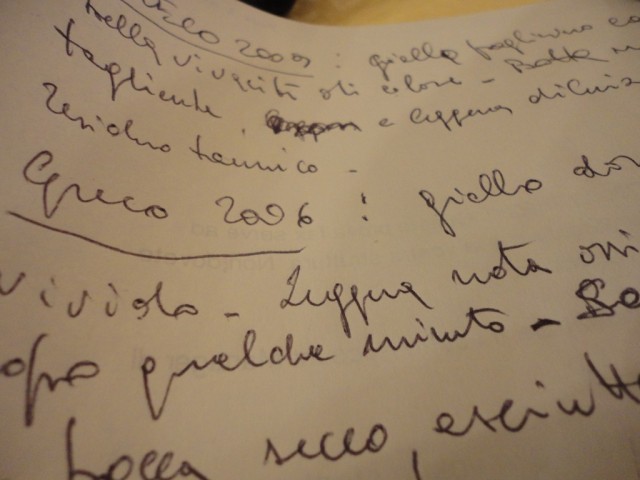 2009: giallo paglierino
bella vivacità di colore - Bocca
tagliente. e leggera
residuo tannico -
Greco 2006: giallo
vivido - Leggera nota
dopo qualche minuto -
bocca secco,